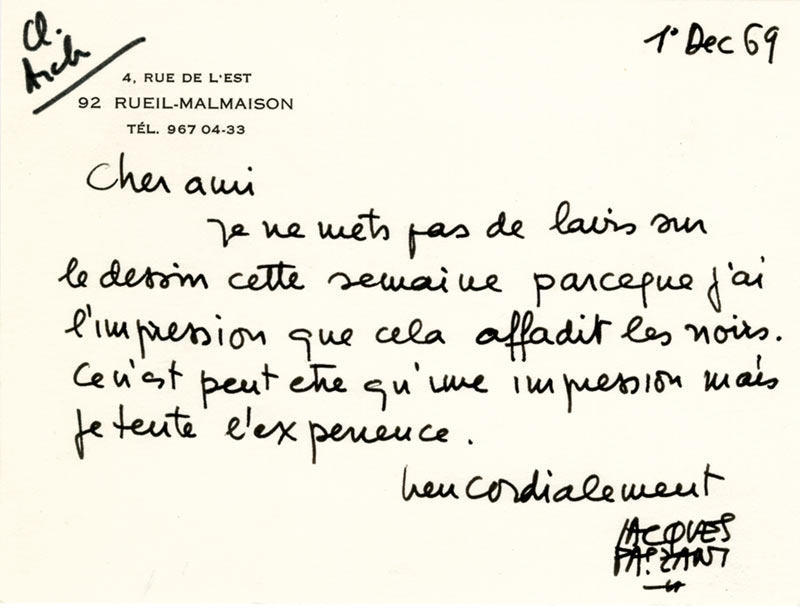 Cl.
Arch
1° Dec 69
4, RUE DE L'EST
92 RUEIL-MALMAISON
TÉL. 967 04-33
Cher ami
Je ne mets pas de lavis sur
le dessin cette semaine parceque j'ai
l'impression que cela affadit les noirs.
Ce n'est peut etre qu'une impression mais
je tente l'experience.
bien cordialement
JACQUES
FAIZANT